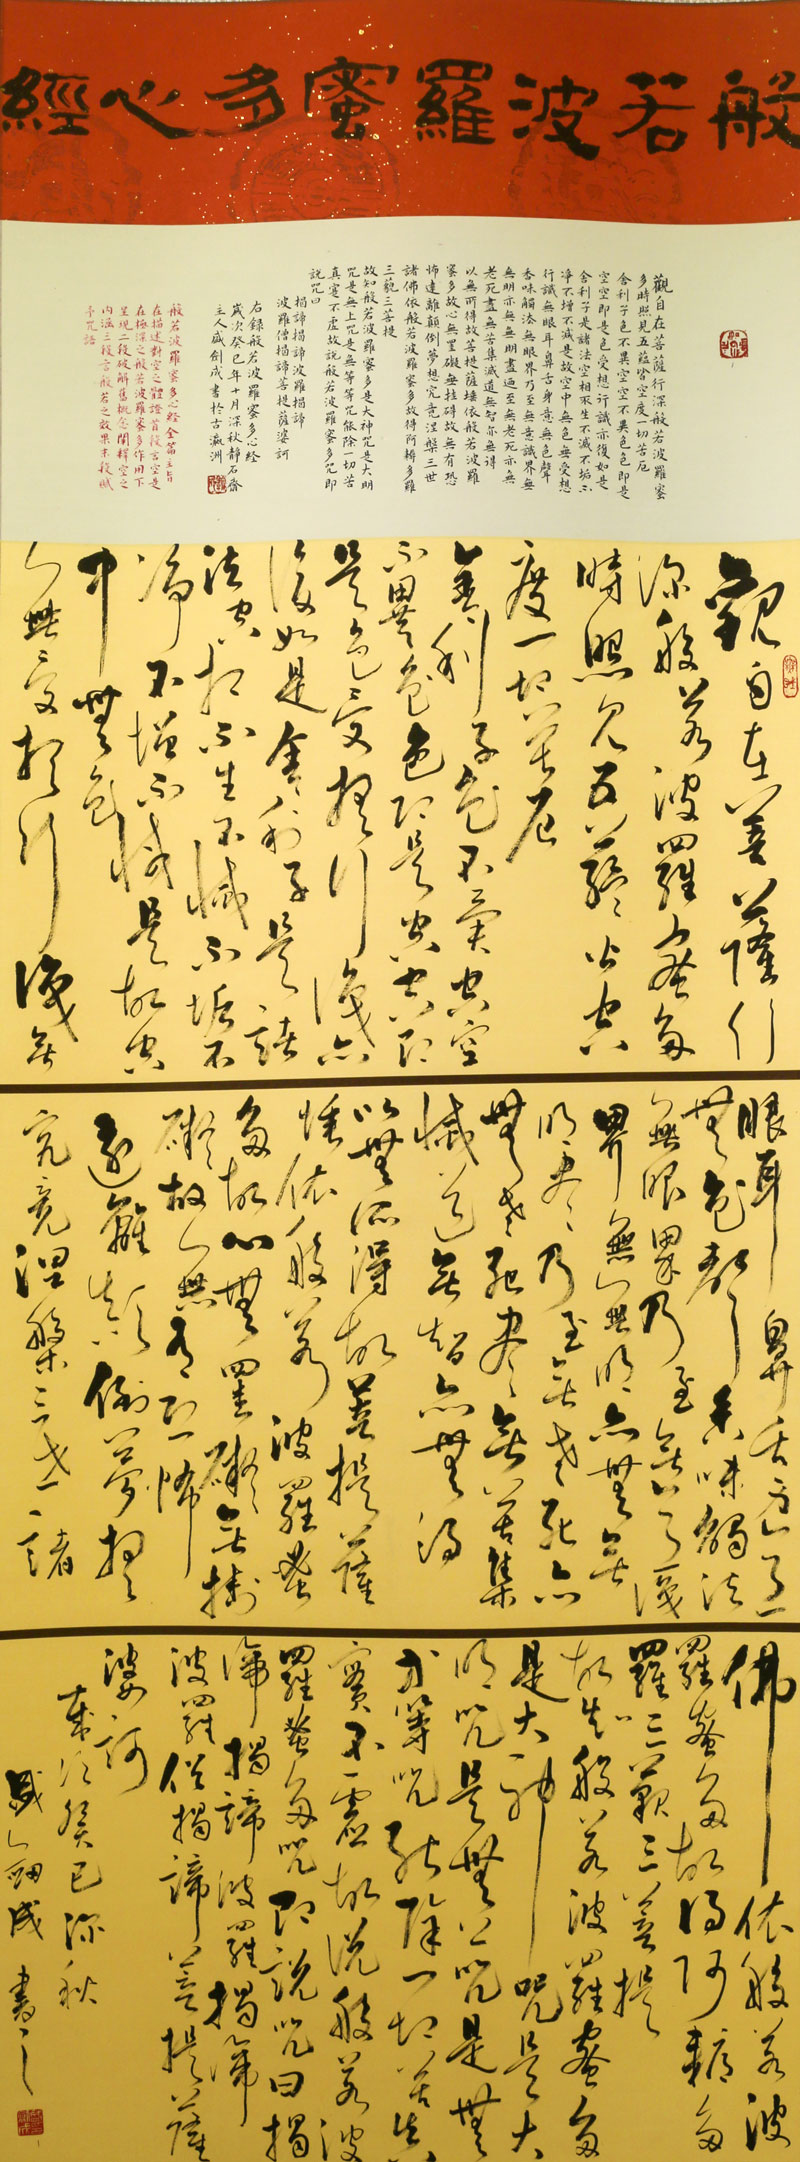 般若波羅蜜多心經
觀自在菩薩行深般若波羅蜜
多時照見五蘊皆空度一切苦厄
舍利子色不異空空不異色色即是
空空即是色受想行識亦復如是
舍利子是諸法空相不生不滅不垢不
淨不增不減是故空中無色無受想
行識無眼耳鼻舌身意無色聲
香味觸法無眼界乃至無意識界無
無明亦無無明盡乃至無老死亦無
老死盡無苦集滅道無智亦無得
以無所得故菩提薩埵依般若波羅
蜜多故心無罣礙無挂碍故無有恐
怖遠離顛倒夢想究竟涅槃三世
諸佛依般若波羅蜜多故得阿耨多羅
三藐三菩提
故知般若波羅蜜多是大神咒是大明
咒是無上咒是無等等咒能除一切苦
真實不虛故說般若波羅蜜多咒即
說咒曰
揭諦揭諦波羅揭諦
波羅僧揭諦菩提薩婆訶
右錄般若波羅蜜多心經
歲次癸巳年十月深秋靜石齋
主人盛劍成書於古瀛洲
般若波羅蜜多心經全篇主旨
在描述對空之體證首段言空是
在極深之般若波羅蜜多作用下
呈現二段破解舊概念闡釋空之
內涵三段言般若之效果末段賦
予咒語
觀自在菩薩行
深般若波羅蜜多
時照見五蘊皆空
度一切苦厄
舍利子色不異空空
不異色色即是空空即
是色受想行識亦
復如是舍利子是諸
法空相不生不滅不垢不
淨不增不減是故空
中無色
無受想行識無
眼耳鼻舌身意
無色聲香味觸法
無眼界乃至無意識
界無無明亦無無
明盡乃至無老死亦
無老死盡無苦集
滅道無智亦無得
以無所得故菩提薩
埵依般若波羅蜜
多故心無罣礙無掛
礙故無有恐怖
遠離顛倒夢想
究竟涅槃三世諸
佛依般若波
羅蜜多故得阿耨多
羅三藐三菩提
故知般若波羅蜜多
是大神咒是大
明咒是無上咒是無
等等咒能除一切苦真
實不虛故說般若波
羅蜜多咒即說咒曰揭
諦揭諦波羅揭諦
波羅僧揭諦菩提薩
婆訶
歲次癸巳深秋
盛劍成書之